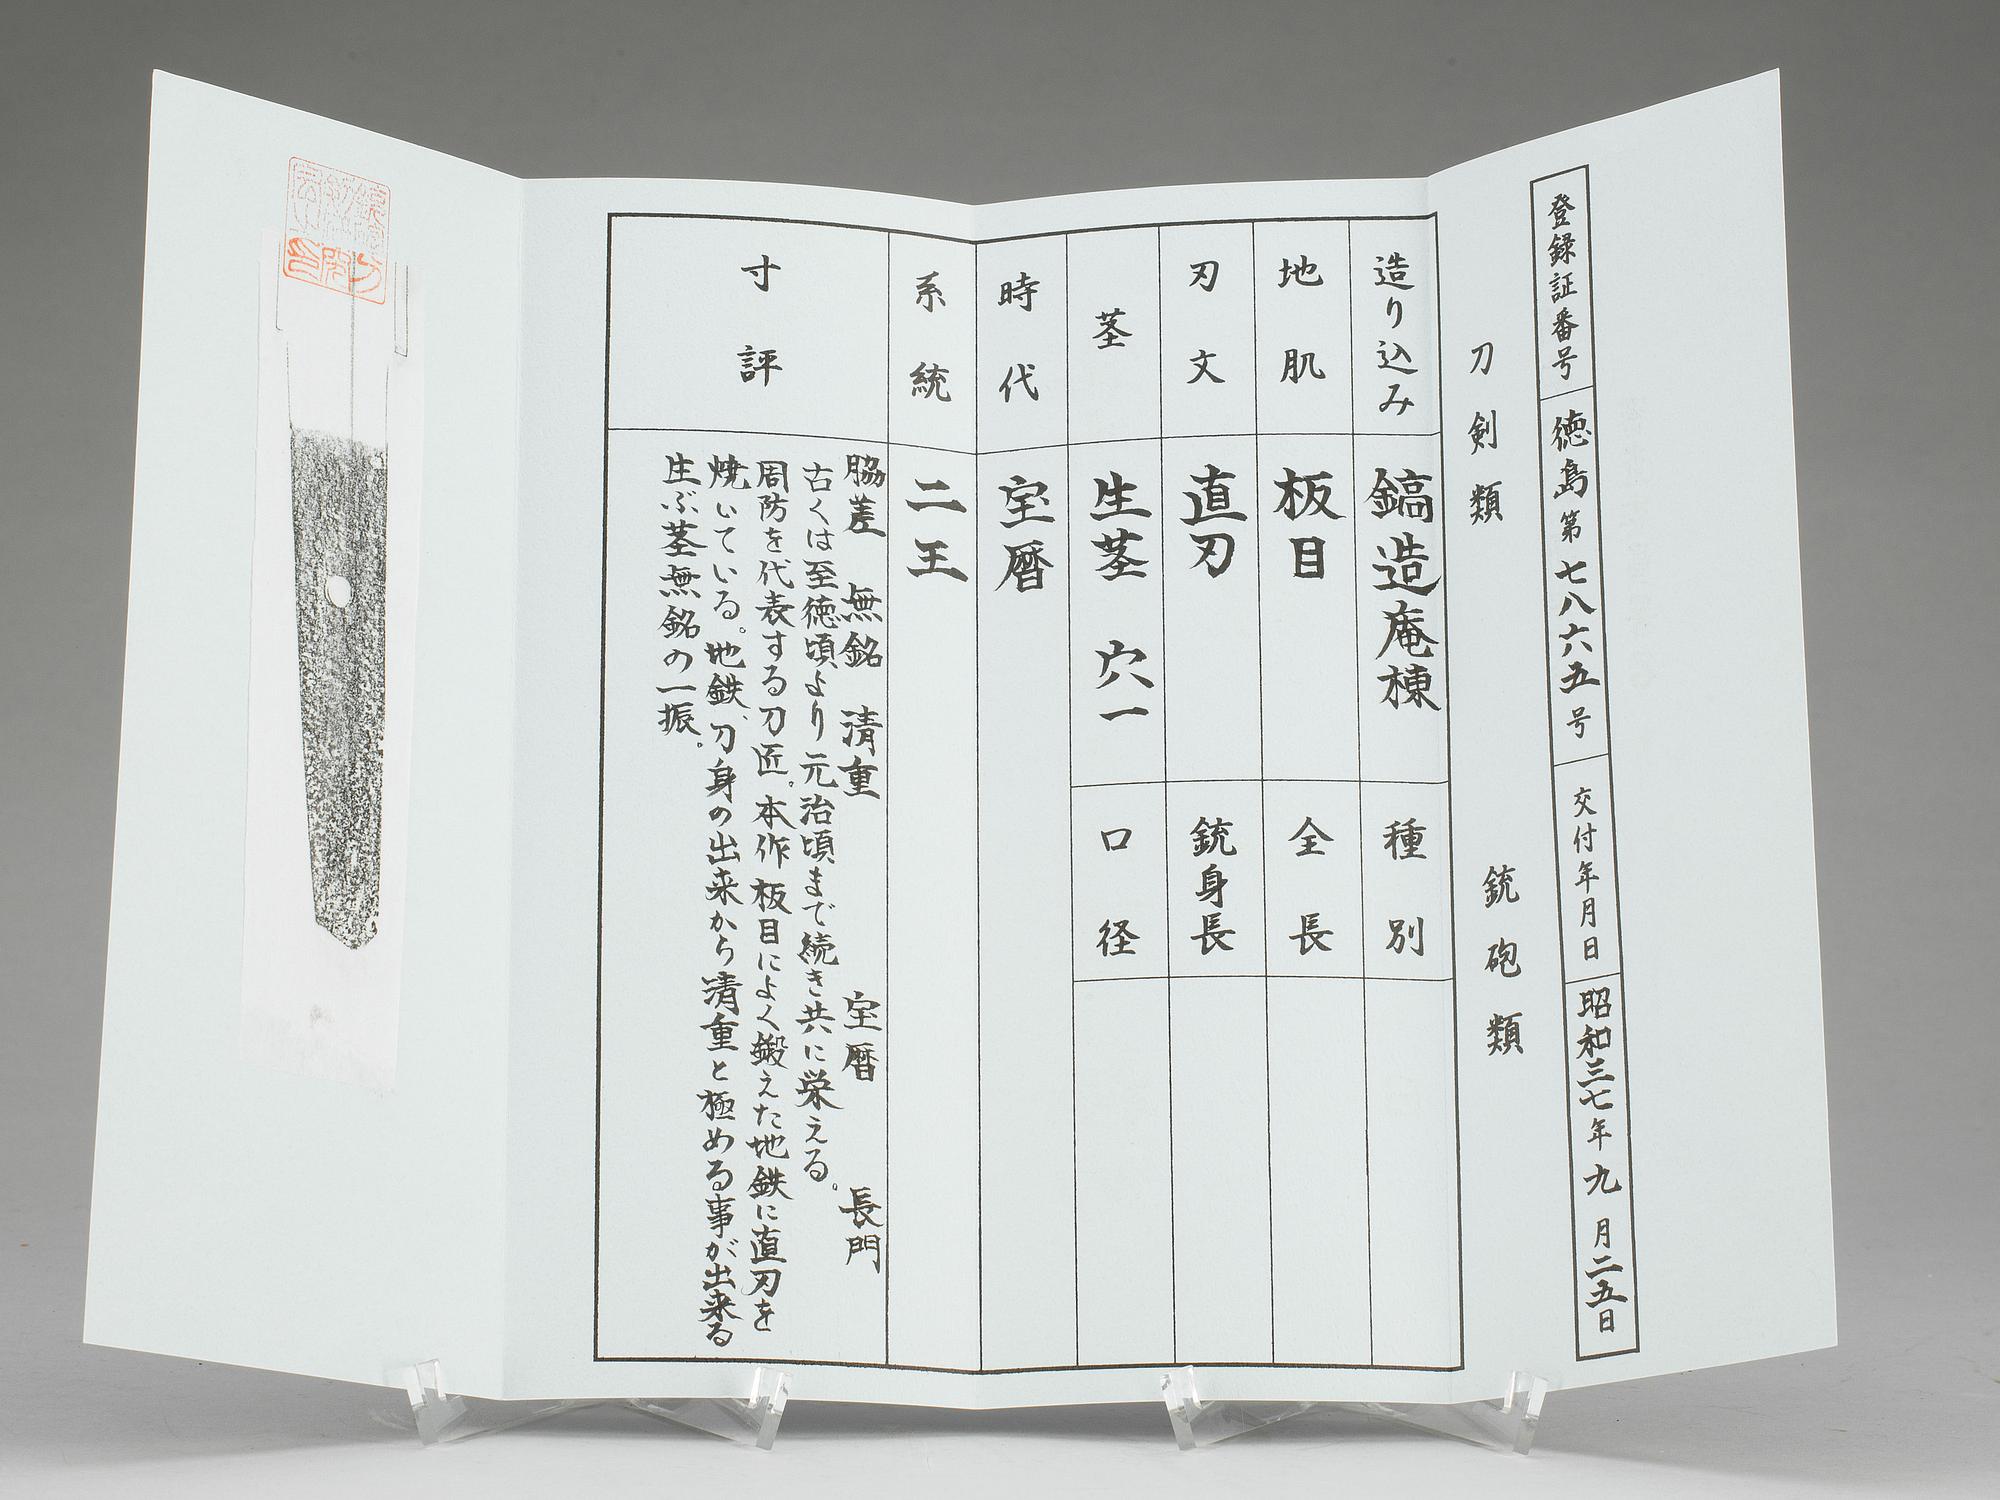 登録証番号 徳島第七八六五号 交付年月日 昭和三七年九月二五日
刀剣類 銃砲類
造り込み 鎬造庵棟 種別
地肌 板目 全長
刃文 直刃 銃身長
茎 生茎 穴一 口径
時代 宝暦
系統 二王
寸評
脇差 無銘 清重 宝暦 長門
古くは至徳頃より元治頃まで続き共に栄える。
周防を代表する刀匠。本作板目によく鍛えた地鉄に直刃を
焼いている。地鉄、刀身の出来から清重と極める事が出来る
生ぶ茎無銘の一振。